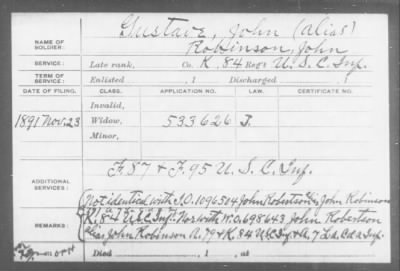 NAME OF SOLDIER: Gustave, John (alias)
Robinson, John
SERVICE: Late rank, Co. K, 84 Reg't U. S. C. Inf.
TERM OF SERVICE: Enlisted , 1 Discharged , 1
DATE OF FILING. CLASS. APPLICATION NO. LAW. CERTIFICATE NO.
Invalid,
1891 Nov. 23 Widow, 533626 J.
Minor,
ADDITIONAL SERVICES: F. 87 & F. 95 U. S. C. Inf.
REMARKS: Not identical with I.O. 1096504 John Robertson John Robinson
K. 84 U.S.C. Inf. Nor with W.O. 698643 John Robertson
alias John Robinson A. 79 & K. 84 U.S.C. Inf. & A. 7 La. Col'd Inf.
Died , 1 , at